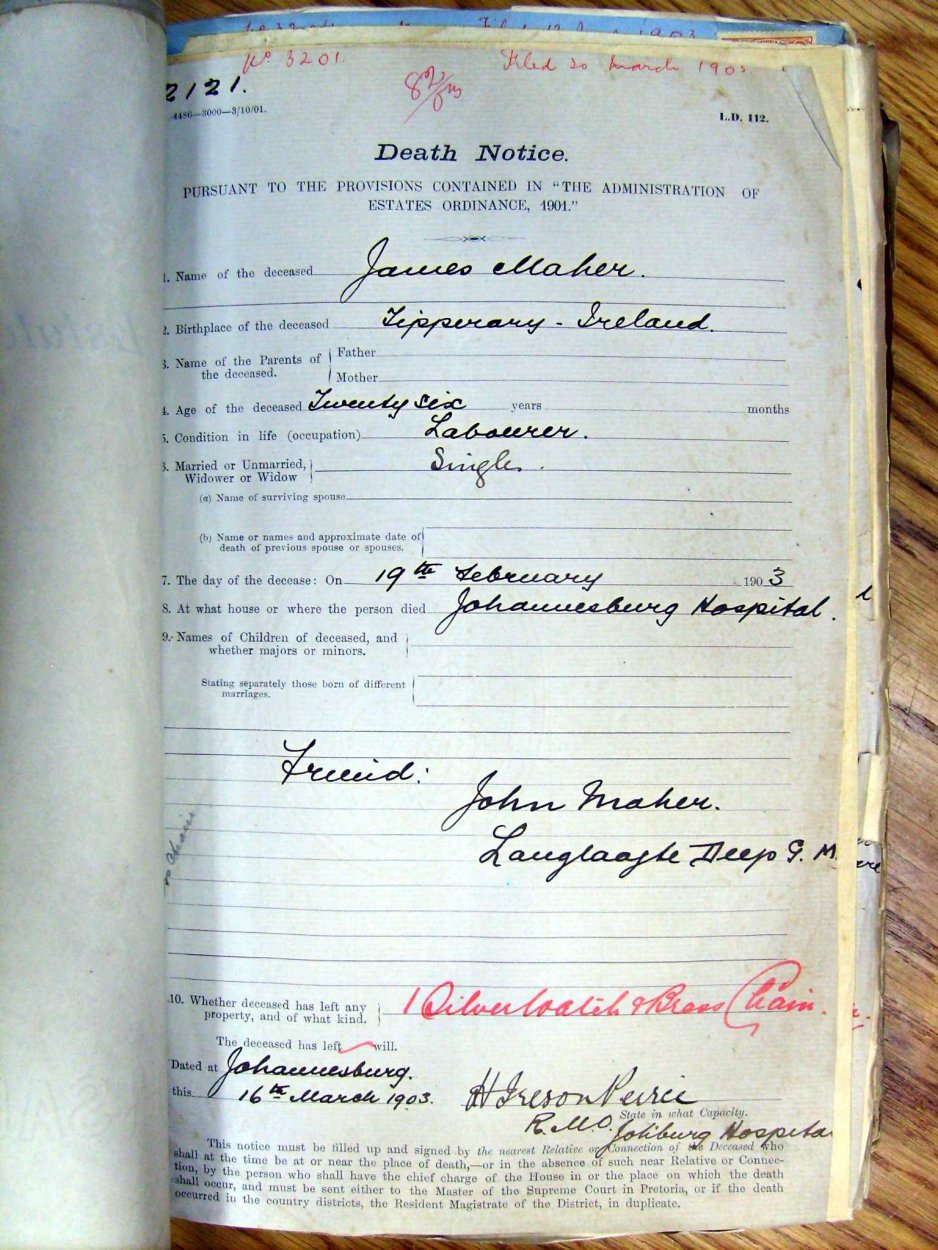 No. 3201. Filed 20 March 1903
2121.
4486—3000—3/10/01.
L.D. 112.
Death Notice.
PURSUANT TO THE PROVISIONS CONTAINED IN "THE ADMINISTRATION OF
ESTATES ORDINANCE, 1901."
1. Name of the deceased James Maher.
2. Birthplace of the deceased Tipperary - Ireland.
3. Name of the Parents of the deceased. Father
Mother
4. Age of the deceased Twenty six years months
5. Condition in life (occupation) Labourer.
6. Married or Unmarried, Widower or Widow Single.
(a) Name of surviving spouse
(b) Name or names and approximate date of
death of previous spouse or spouses.
7. The day of the decease: On 19th February 1903
8. At what house or where the person died Johannesburg Hospital.
9. Names of Children of deceased, and
whether majors or minors.
Stating separately those born of different
marriages.
Friend:
John Maher.
Langlaagte Deep G. M.
10. Whether deceased has left any
property, and of what kind. 1 Silver Watch & Brass Chain.
The deceased has left will.
Dated at Johannesburg.
this 16th March 1903. H Ireson
State in what Capacity.
R.M.O. Joh'burg Hospital
This notice must be filled up and signed by the nearest Relative or Connection of the Deceased who
shall at the time be at or near the place of death,—or in the absence of such near Relative or Connec-
tion, by the person who shall have the chief charge of the House in or the place on which the death
shall occur, and must be sent either to the Master of the Supreme Court in Pretoria, or if the death
occurred in the country districts, the Resident Magistrate of the District, in duplicate.